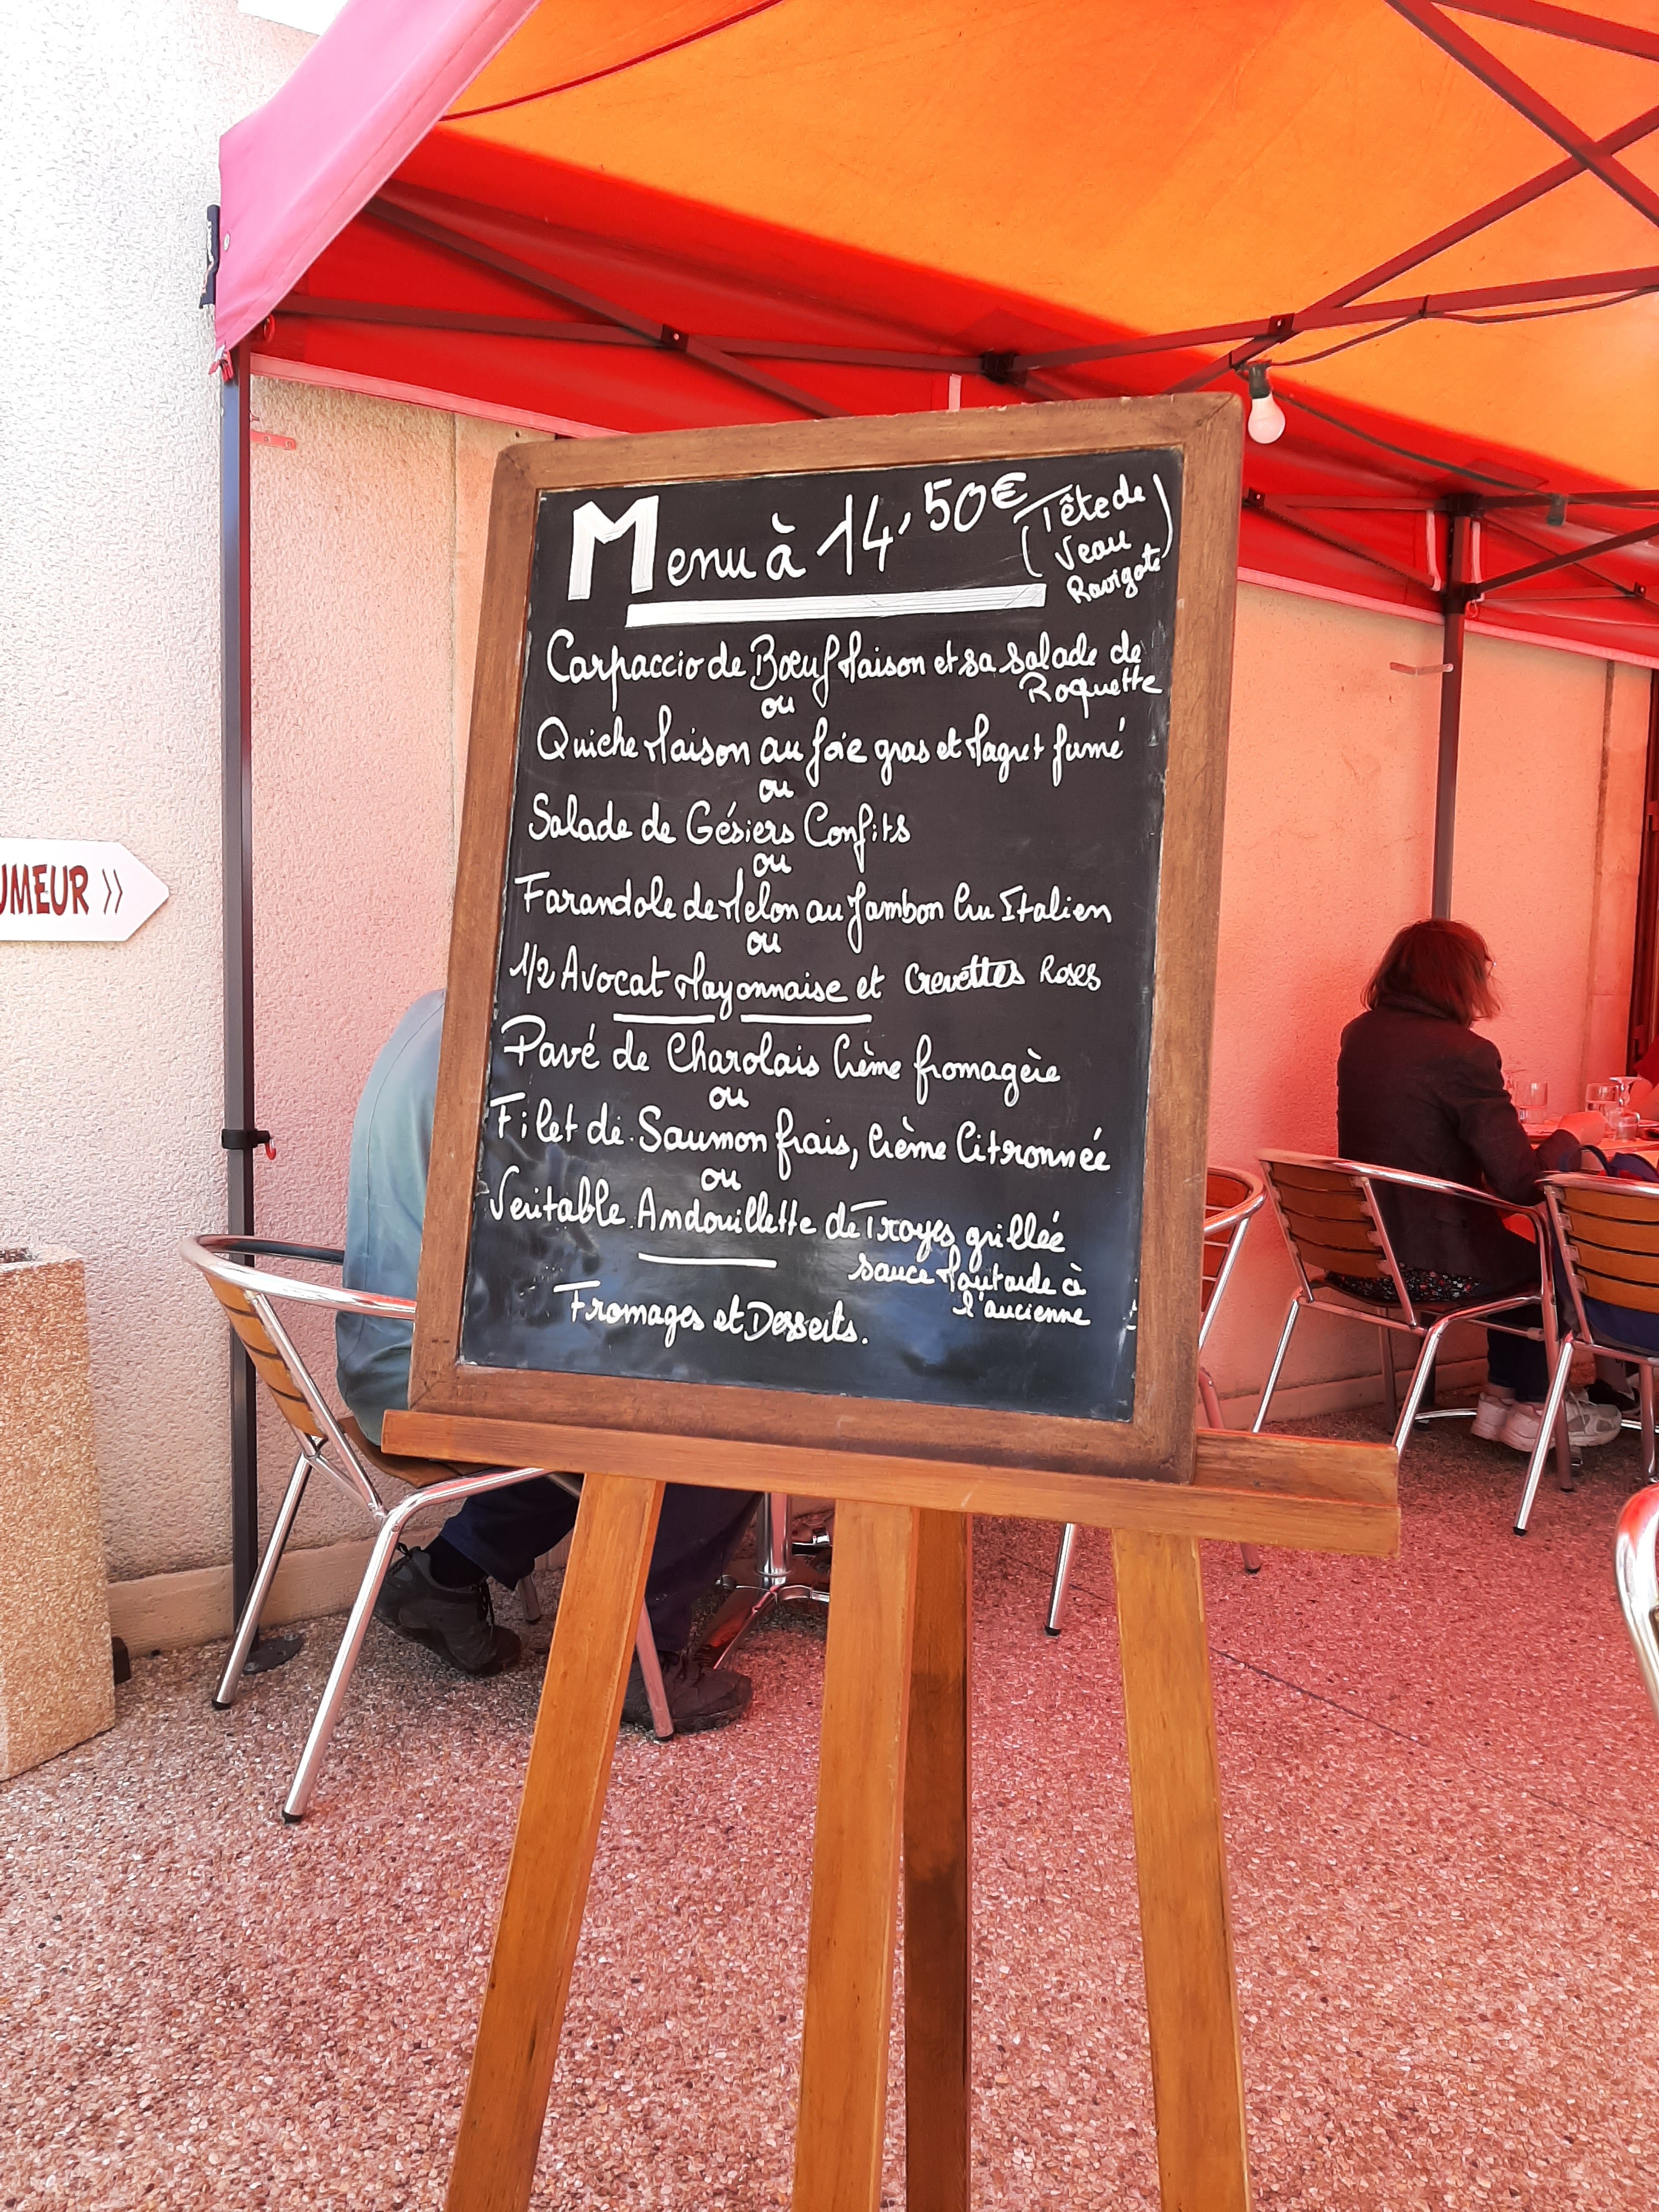 Menu à 14,50€
(Tête de
Veau
Ravigote)
Carpaccio de Bœuf Maison et sa Salade de
Roquette
ou
Quiche Maison au foie gras et Magret fumé
ou
Salade de Gésiers Confits
ou
Farandole de Melon au Jambon Cru Italien
ou
1/2 Avocat Mayonnaise et Crevettes Roses
Pavé de Charolais Crème fromagère
ou
Filet de Saumon frais, Crème Citronnée
ou
Veritable Andouillette de Troyes grillée
Sauce Moutarde à
l'ancienne
Fromages et Desserts.
UMEUR »